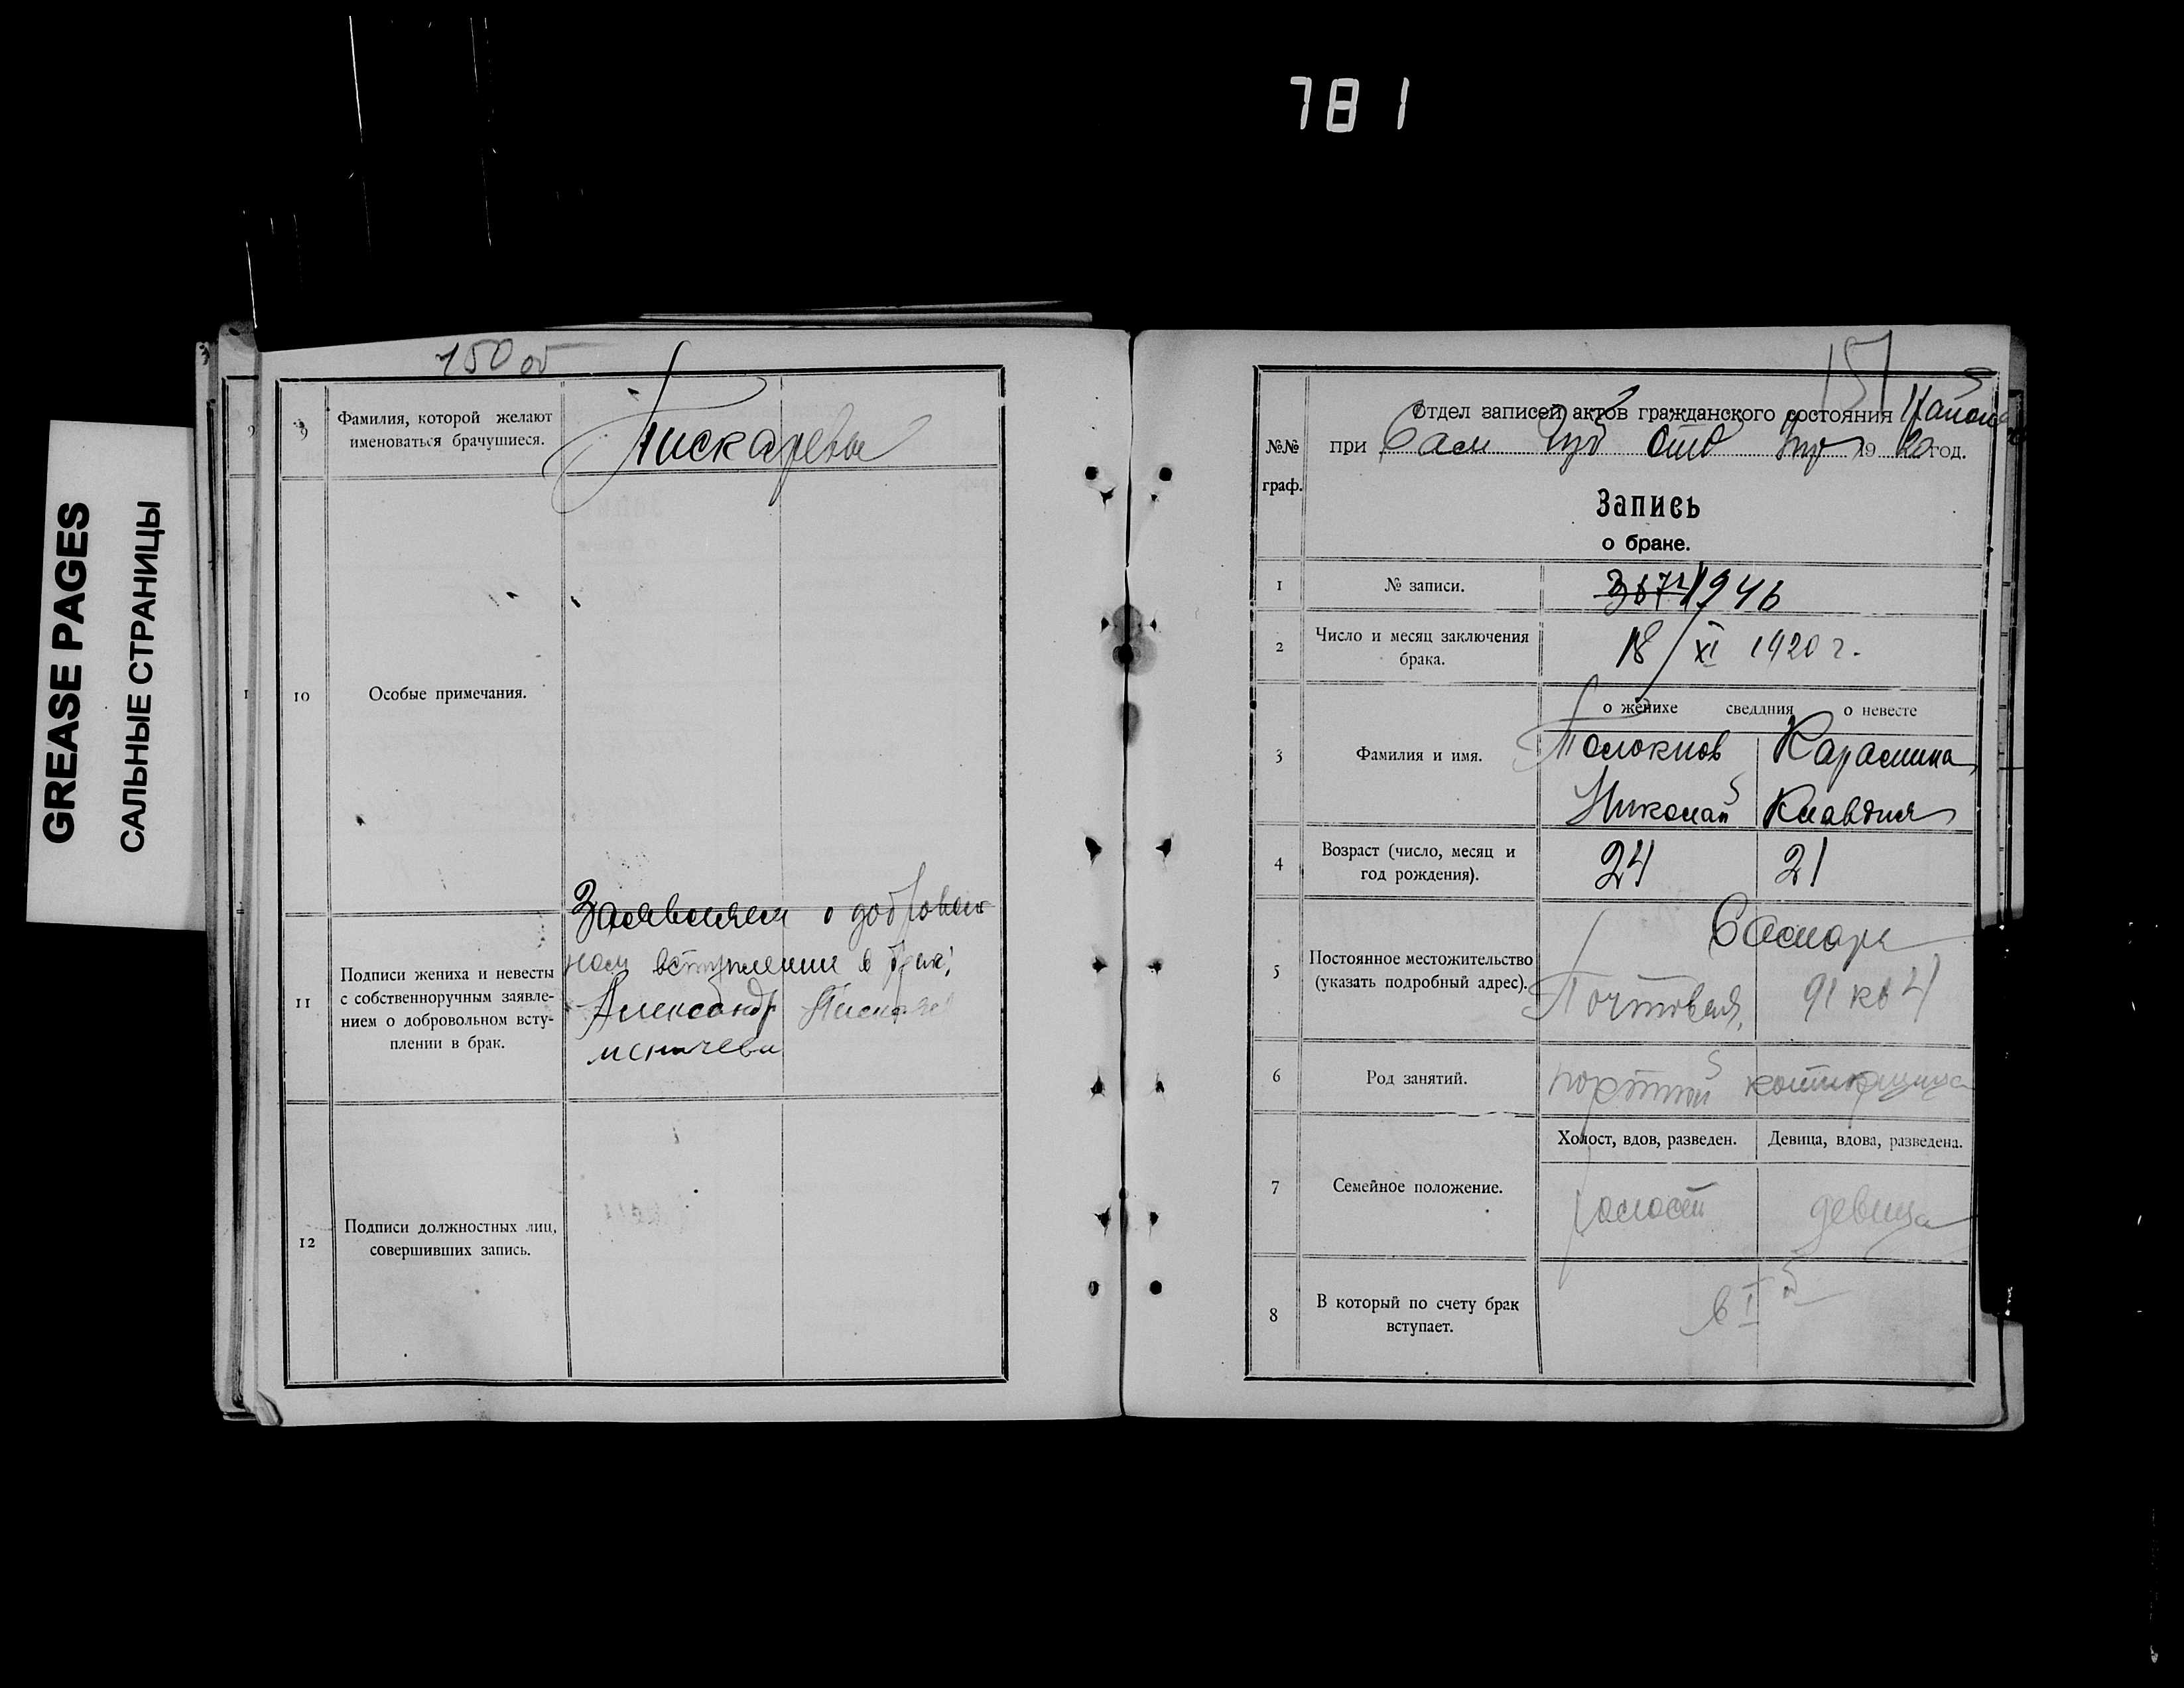 781
GREASE PAGES
САЛЬНЫЕ СТРАНИЦЫ
150 об
9
Фамилия, которой желают
именоваться брачущиеся.
Пискаревы
10
Особые примечания.
11
Подписи жениха и невесты
с собственноручным заявле-
нием о добровольном всту-
плении в брак.
Заявляем о добровол
ном вступлении в брак
Александр Пискарев
12
Подписи должностных лиц,
совершивших запись.
151
№№
граф.
Отдел записей актов гражданского состояния
при Сам Губ Отд Упр 1920 год.
Запись
о браке.
1
№ записи.
1946
2
Число и месяц заключения
брака.
18/XI 1920 г.
о женихе сведдния о невесте
3
Фамилия и имя.
Толокнов Карамина
Николай Клавдия
4
Возраст (число, месяц и
год рождения).
24 21
5
Постоянное местожительство
(указать подробный адрес).
Самара
Почтовая, 91 кв 4
6
Род занятий.
портной конторщица
7
Семейное положение.
Холост, вдов, разведен. Девица, вдова, разведена.
холост девица
8
В который по счету брак
вступает.
в I й